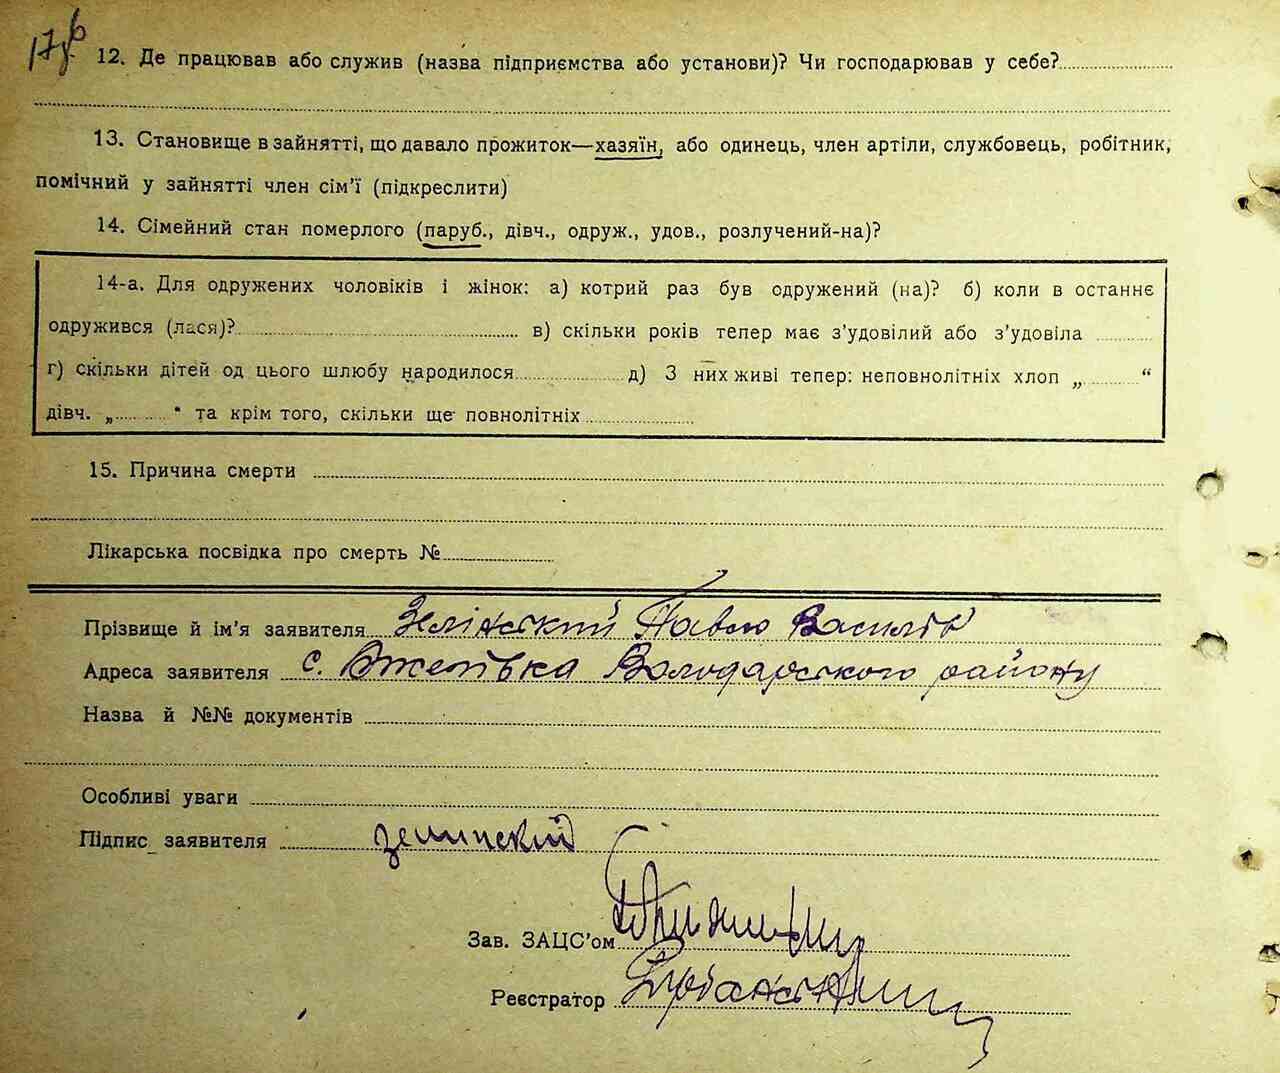 12. Де працював або служив (назва підприємства або установи)? Чи господарював у себе?
13. Становище в зайнятті, що давало прожиток—хазяїн, або одинець, член артіли, службовець, робітник,
помічний у зайнятті член сім'ї (підкреслити)
14. Сімейний стан померлого (паруб., дівч., одруж., удов., розлучений-на)?
14-а. Для одружених чоловіків і жінок: а) котрий раз був одружений (на)? б) коли в останнє
одружився (лася)? в) скільки років тепер має з'удовілий або з'удовіла
г) скільки дітей од цього шлюбу народилося д) З них живі тепер: неповнолітніх хлоп „ “
дівч. „ “ та крім того, скільки ще повнолітніх
15. Причина смерти
Лікарська посвідка про смерть №
Прізвище й ім'я заявителя Зелінський Павло Василів
Адреса заявителя с. Володарського району
Назва й №№ документів
Особливі уваги
Підпис заявителя зелинский
Зав. ЗАЦС'ом
Реєстратор